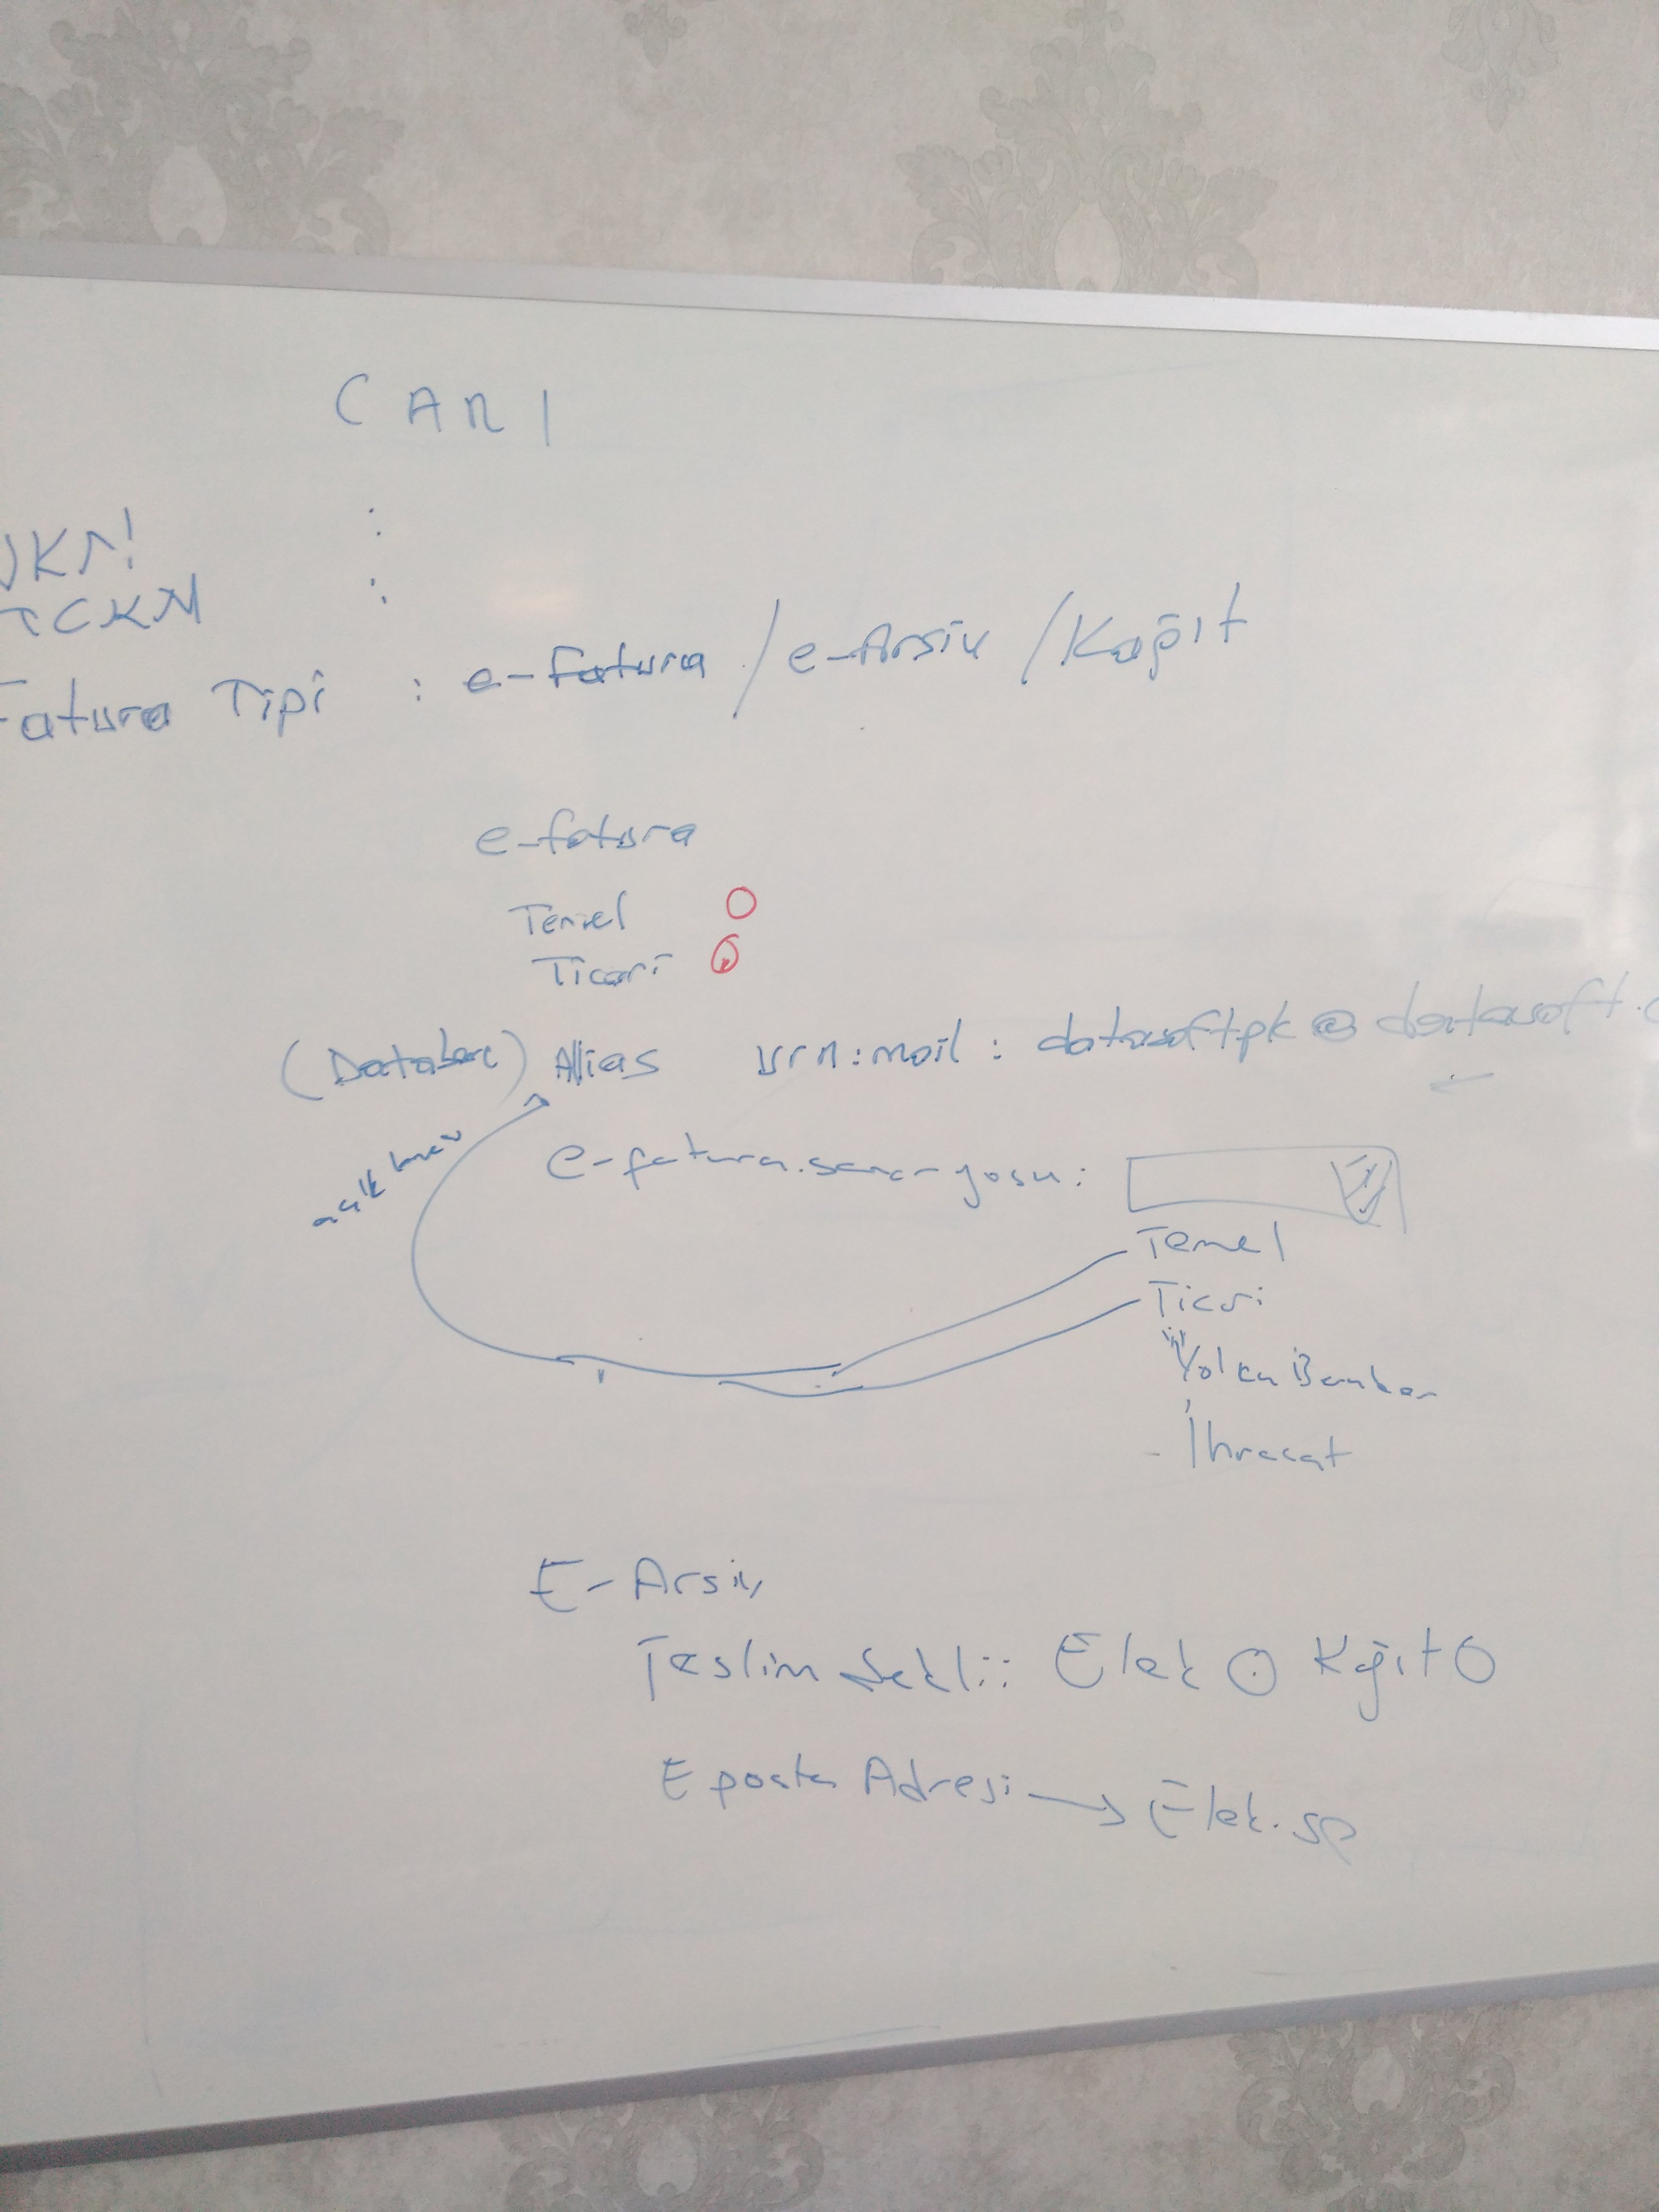 CARI
VKN!
TCKN
Fatura Tipi : e-fatura / e-Arsiv / Kağıt
e-fatura
Temel
Ticari
(Database) Alias urn:mail: datasoftpk@datasoft.
e-fatura senaryosu:
Temel
Ticari
Yolcu Beraber
İhracat
E-Arsiv
Teslim Sekli: Elek Kağıt
Eposta Adresi → Elek.